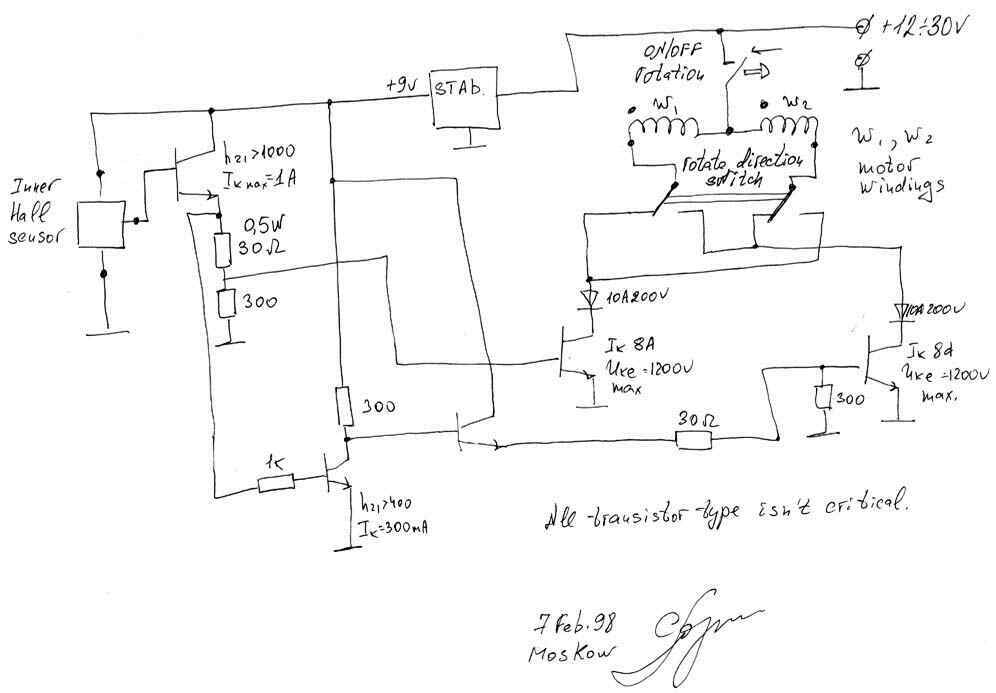 +12÷30V
ON/OFF
rotation
+9v
STAB.
W₁
W₂
W₁, W₂
motor
windings
rotate direction
switch
h₂₁>1000
Iк max=1A
Inner
Hall
sensor
0,5W
30Ω
300
10A200V
10A200V
Iк 8A
Uкe=1200V
max
Iк 8A
Uкe=1200V
max.
300
300
30Ω
1K
h₂₁>400
Iк=300mA
All transistor type isn't critical.
7 Feb. 98
Moskow